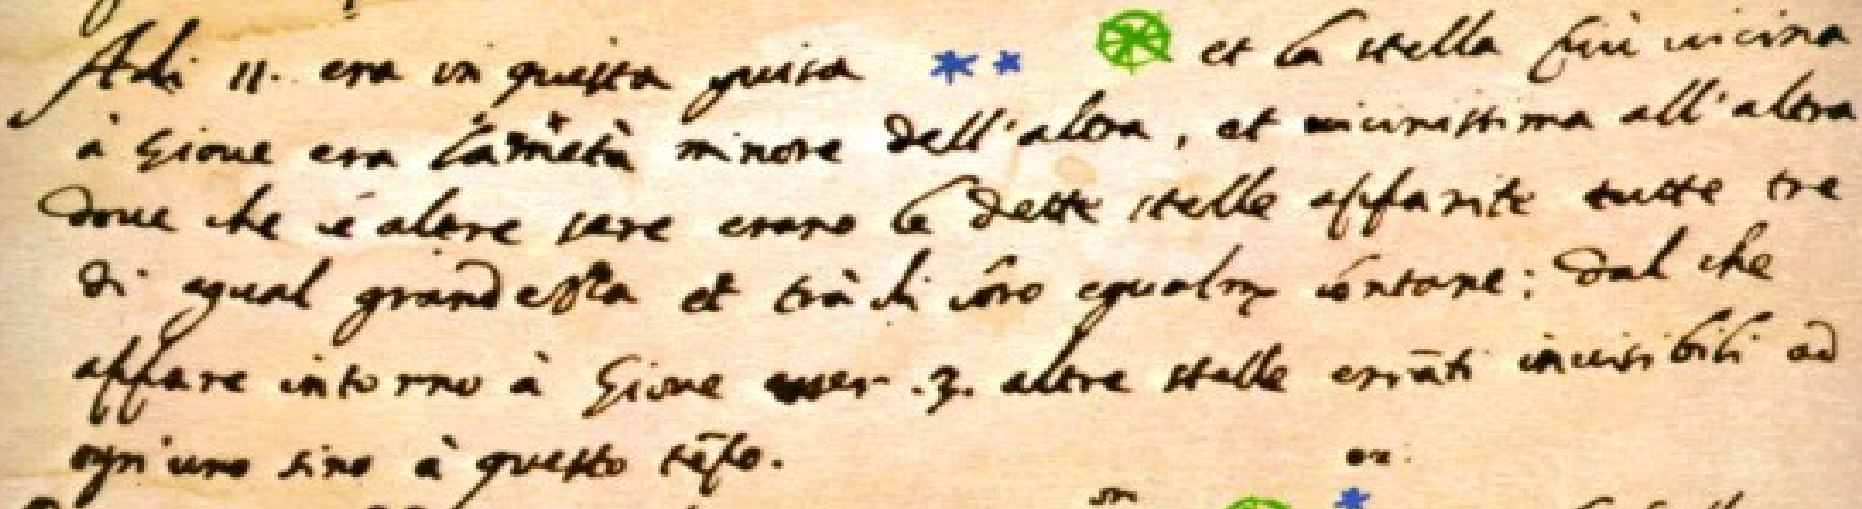 Adi 11. era in questa guisa ** et la stella più vicina
à Giove era la metà minore dell'altra, et vicinissima all'altra
dove che le altre sere erano le dette stelle apparite tutte tre
di egual grandezza et trà di loro egualm lontane: dal che
appare intorno à Giove esser .3. altre stelle errāti invisibili ad
ogn'uno sino à questo tēpo.
or.